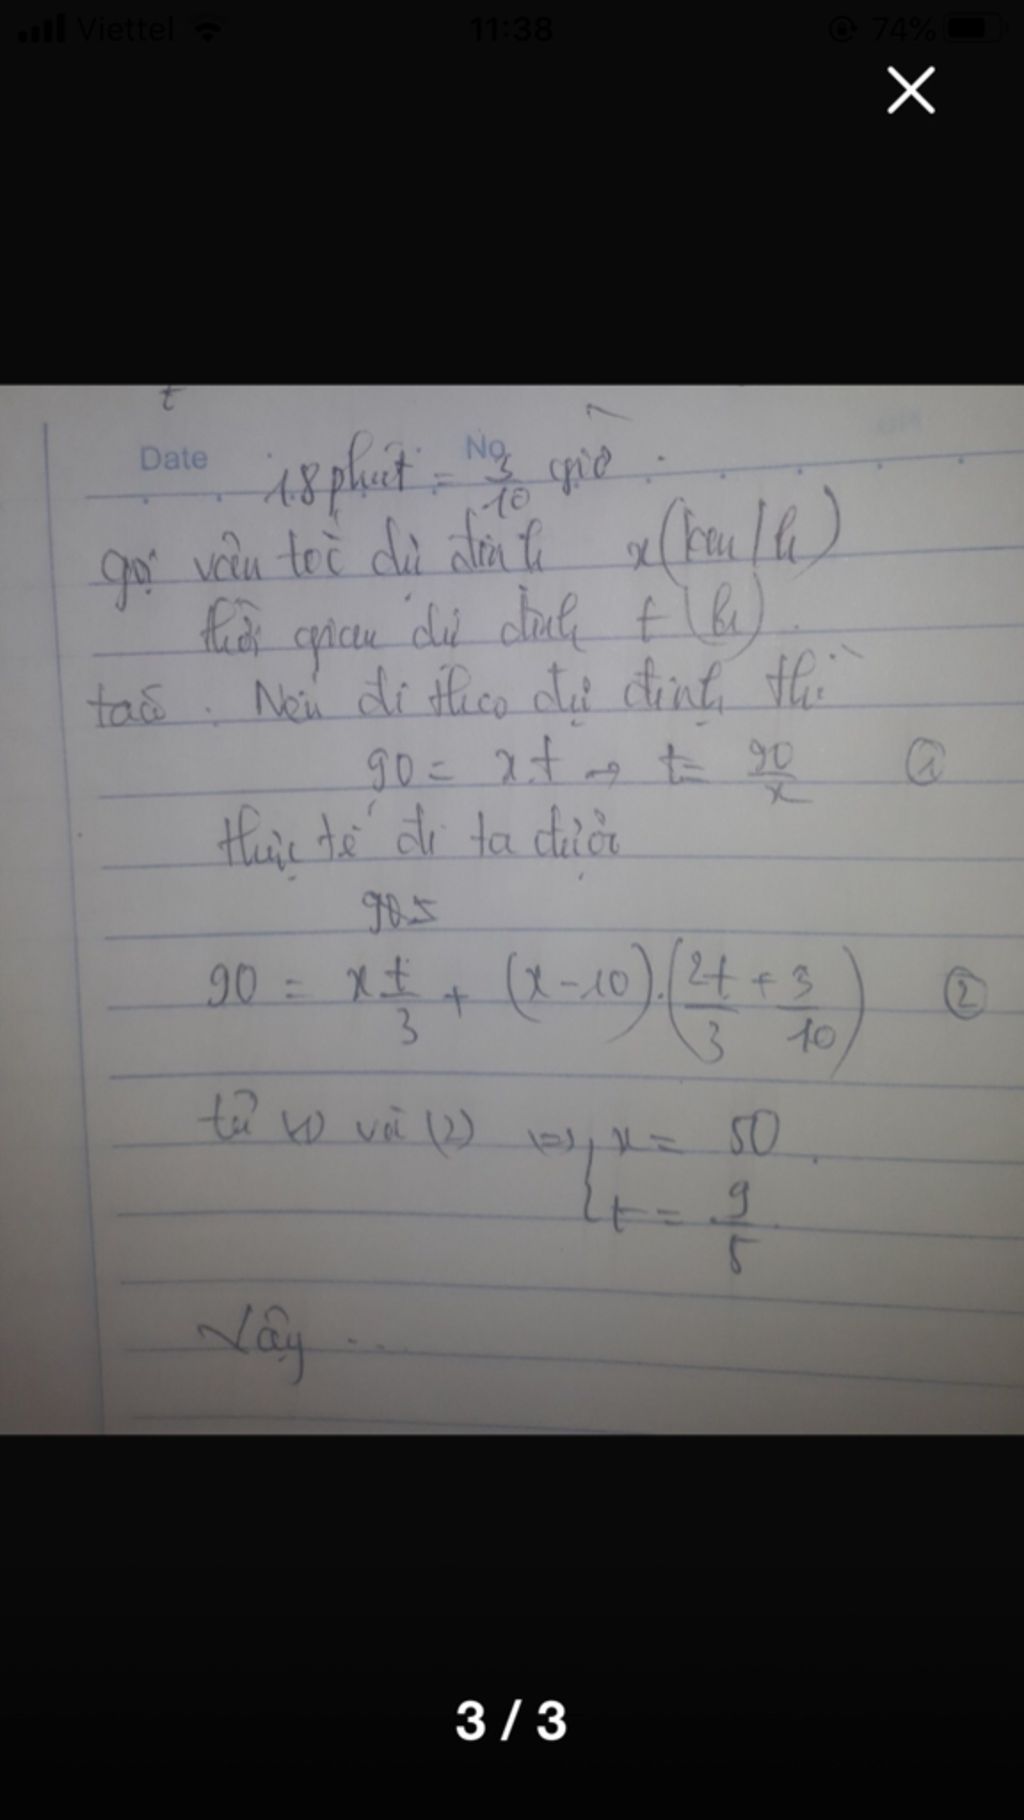 Viettel 11:38 74%
t
Date No
18 phút = 3/10 giờ
gọi vân tốc dự định x (km/h)
thời gian dự định t (h).
ta có . Nếu đi theo dự định thì
90 = x.t → t = 90/x ①
thực tế đi ta được
90 = x t/3 + (x - 10).(2t/3 + 3/10) ②
từ (1) và (2) => { x = 50.
t = 9/5
Vậy ...
3 / 3